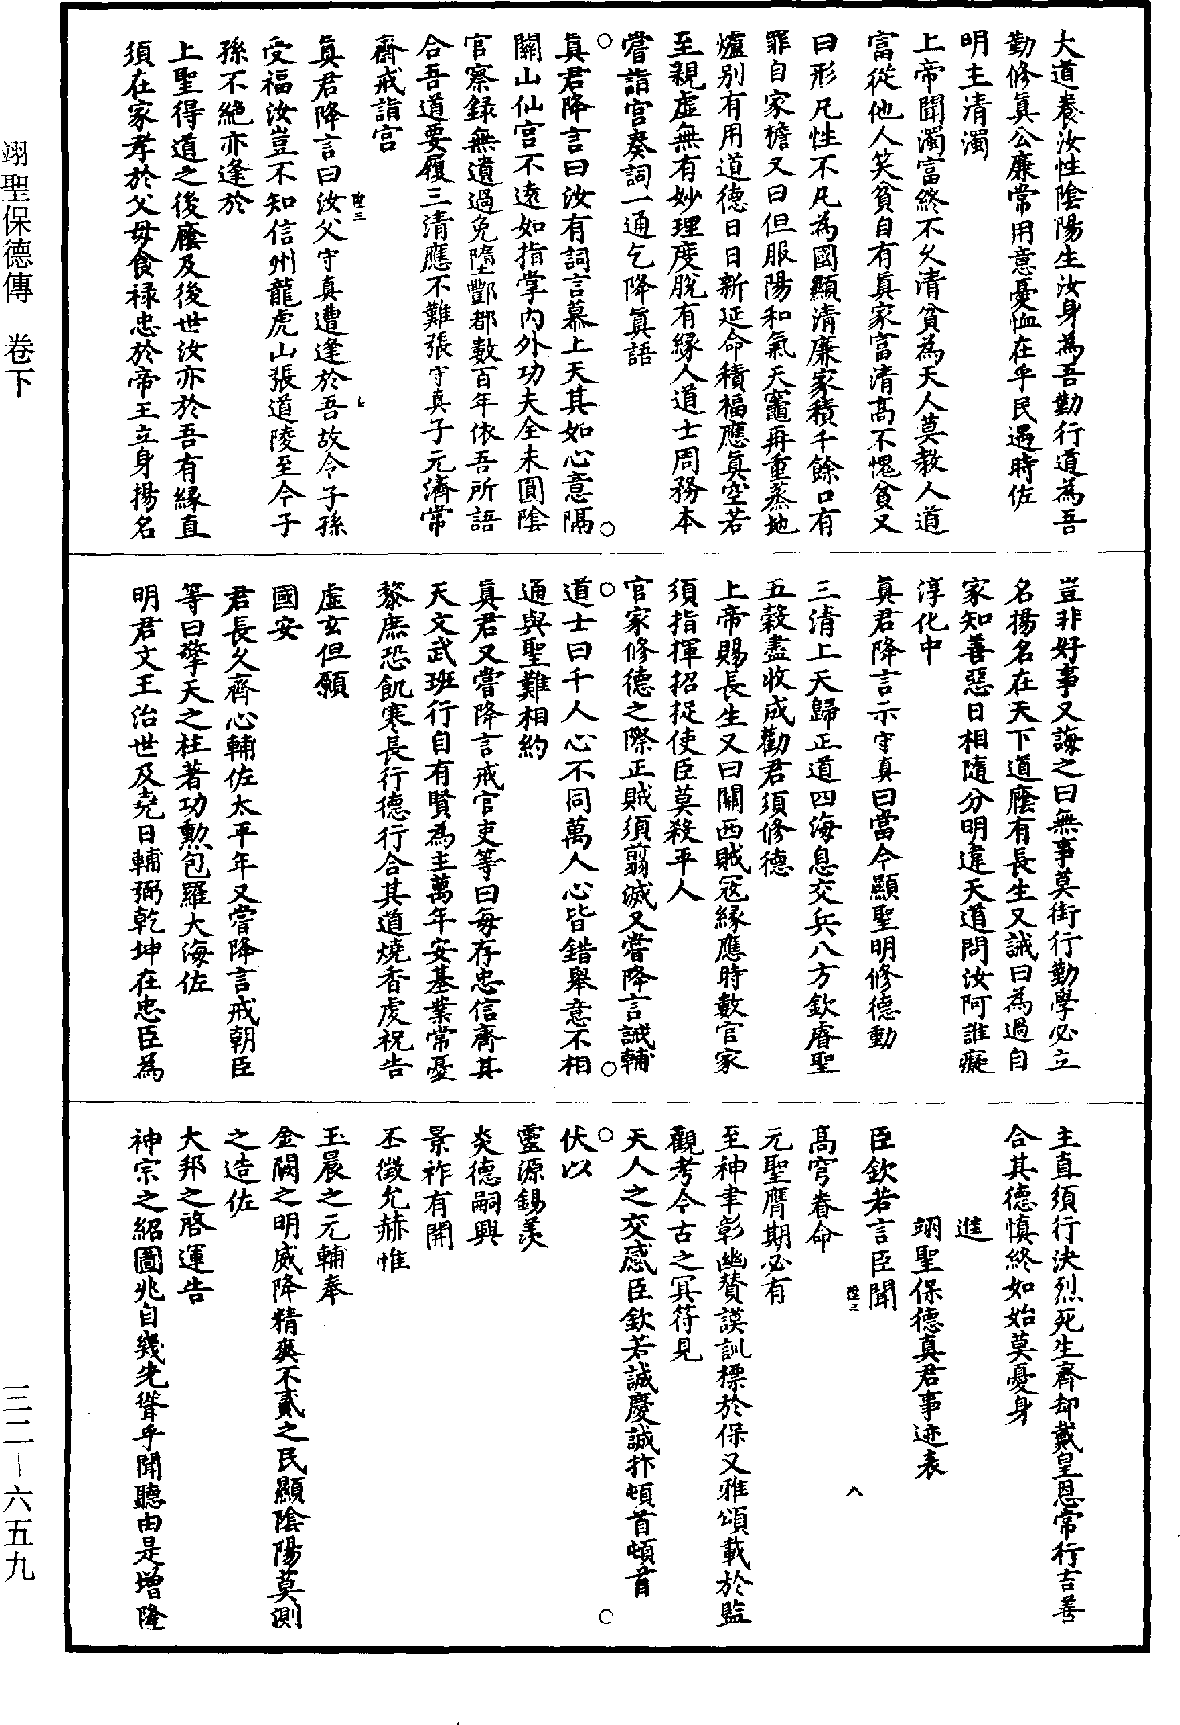 大道養汝性陰陽生汝身為吾勤行道為吾
勤修真公廉常用意憂恤在乎民遇時佐
明主清濁
上帝聞濁富終不久清貧為天人莫教人道
富從他人笑貧自有真家富清高不愧貧又
曰形凡性不凡為國顯清廉家積千餘口有
罪自家擔又曰但服陽和氣天竈再重蒸地
爐別有用道德日日新延命積福應真空若
至親虛無有妙理度脫有緣人道士周務本
嘗詣宮奏詞一通乞降真語
真君降言曰汝有詞言慕上天其如心意隔
關山仙宮不遠如指掌內外功夫全未圓陰
官察錄無遺過免墮酆都數百年依吾所語
合吾道要履三清應不難張守真子元濟常
齋戒詣宮
真君降言曰汝父守真遭逢於吾故令子孫
受福汝豈不知信州龍虎山張道陵至今子
孫不絕亦逢於
上聖得道之後廕及後世汝亦於吾有緣直
須在家孝於父母食祿忠於帝王立身揚名
豈非好事又誨之曰無事莫街行勤學必立
名揚名在天下道廕有長生又誡曰為過自
家知善惡日相隨分明違天道問汝阿誰癡
淳化中
真君降言示守真曰當今顯聖明修德動
三清上天歸正道四海息交兵八方欽睿聖
五穀盡收成勸君須修德
上帝賜長生又曰關西賊寇緣應時數官家
須指揮招捉使臣莫殺平人
官家修德之際正賊須翦滅又嘗降言誡輔
道士曰千人心不同萬人心皆錯舉意不相
通與聖難相約
真君又嘗降言戒官吏等曰每存忠信齋其
天文武班行自有賢為主萬年安基業常憂
黎庶恐飢寒長行德行合其道燒香虔祝告
虛玄但願
國安
君長久齊心輔佐太平年又嘗降言戒朝臣
等曰擎天之柱著功勳包羅大海佐
明君文王治世及堯日輔弼乾坤在忠臣為
主直須行決烈死生齊却戴皇恩常行吉善
合其德慎終如始莫憂身
進
翊聖保德真君事迹表
臣欽若言臣聞
高穹眷命
元聖膺期必有
至神聿彰幽贊謨訓標於保乂雅頌載於監
觀考今古之冥符見
天人之交感臣欽若誠慶誠抃頓首頓首
伏以
靈源錫羨
炎德嗣興
景祚有開
丕徵允赫惟
玉晨之元輔奉
金闕之明威降精爽不貳之民顯陰陽莫測
之造佐
大邦之啓運告
神宗之紹圖兆自幾先聳乎聞聽由是增隆
翊聖保德傳 卷下
三二－六五九